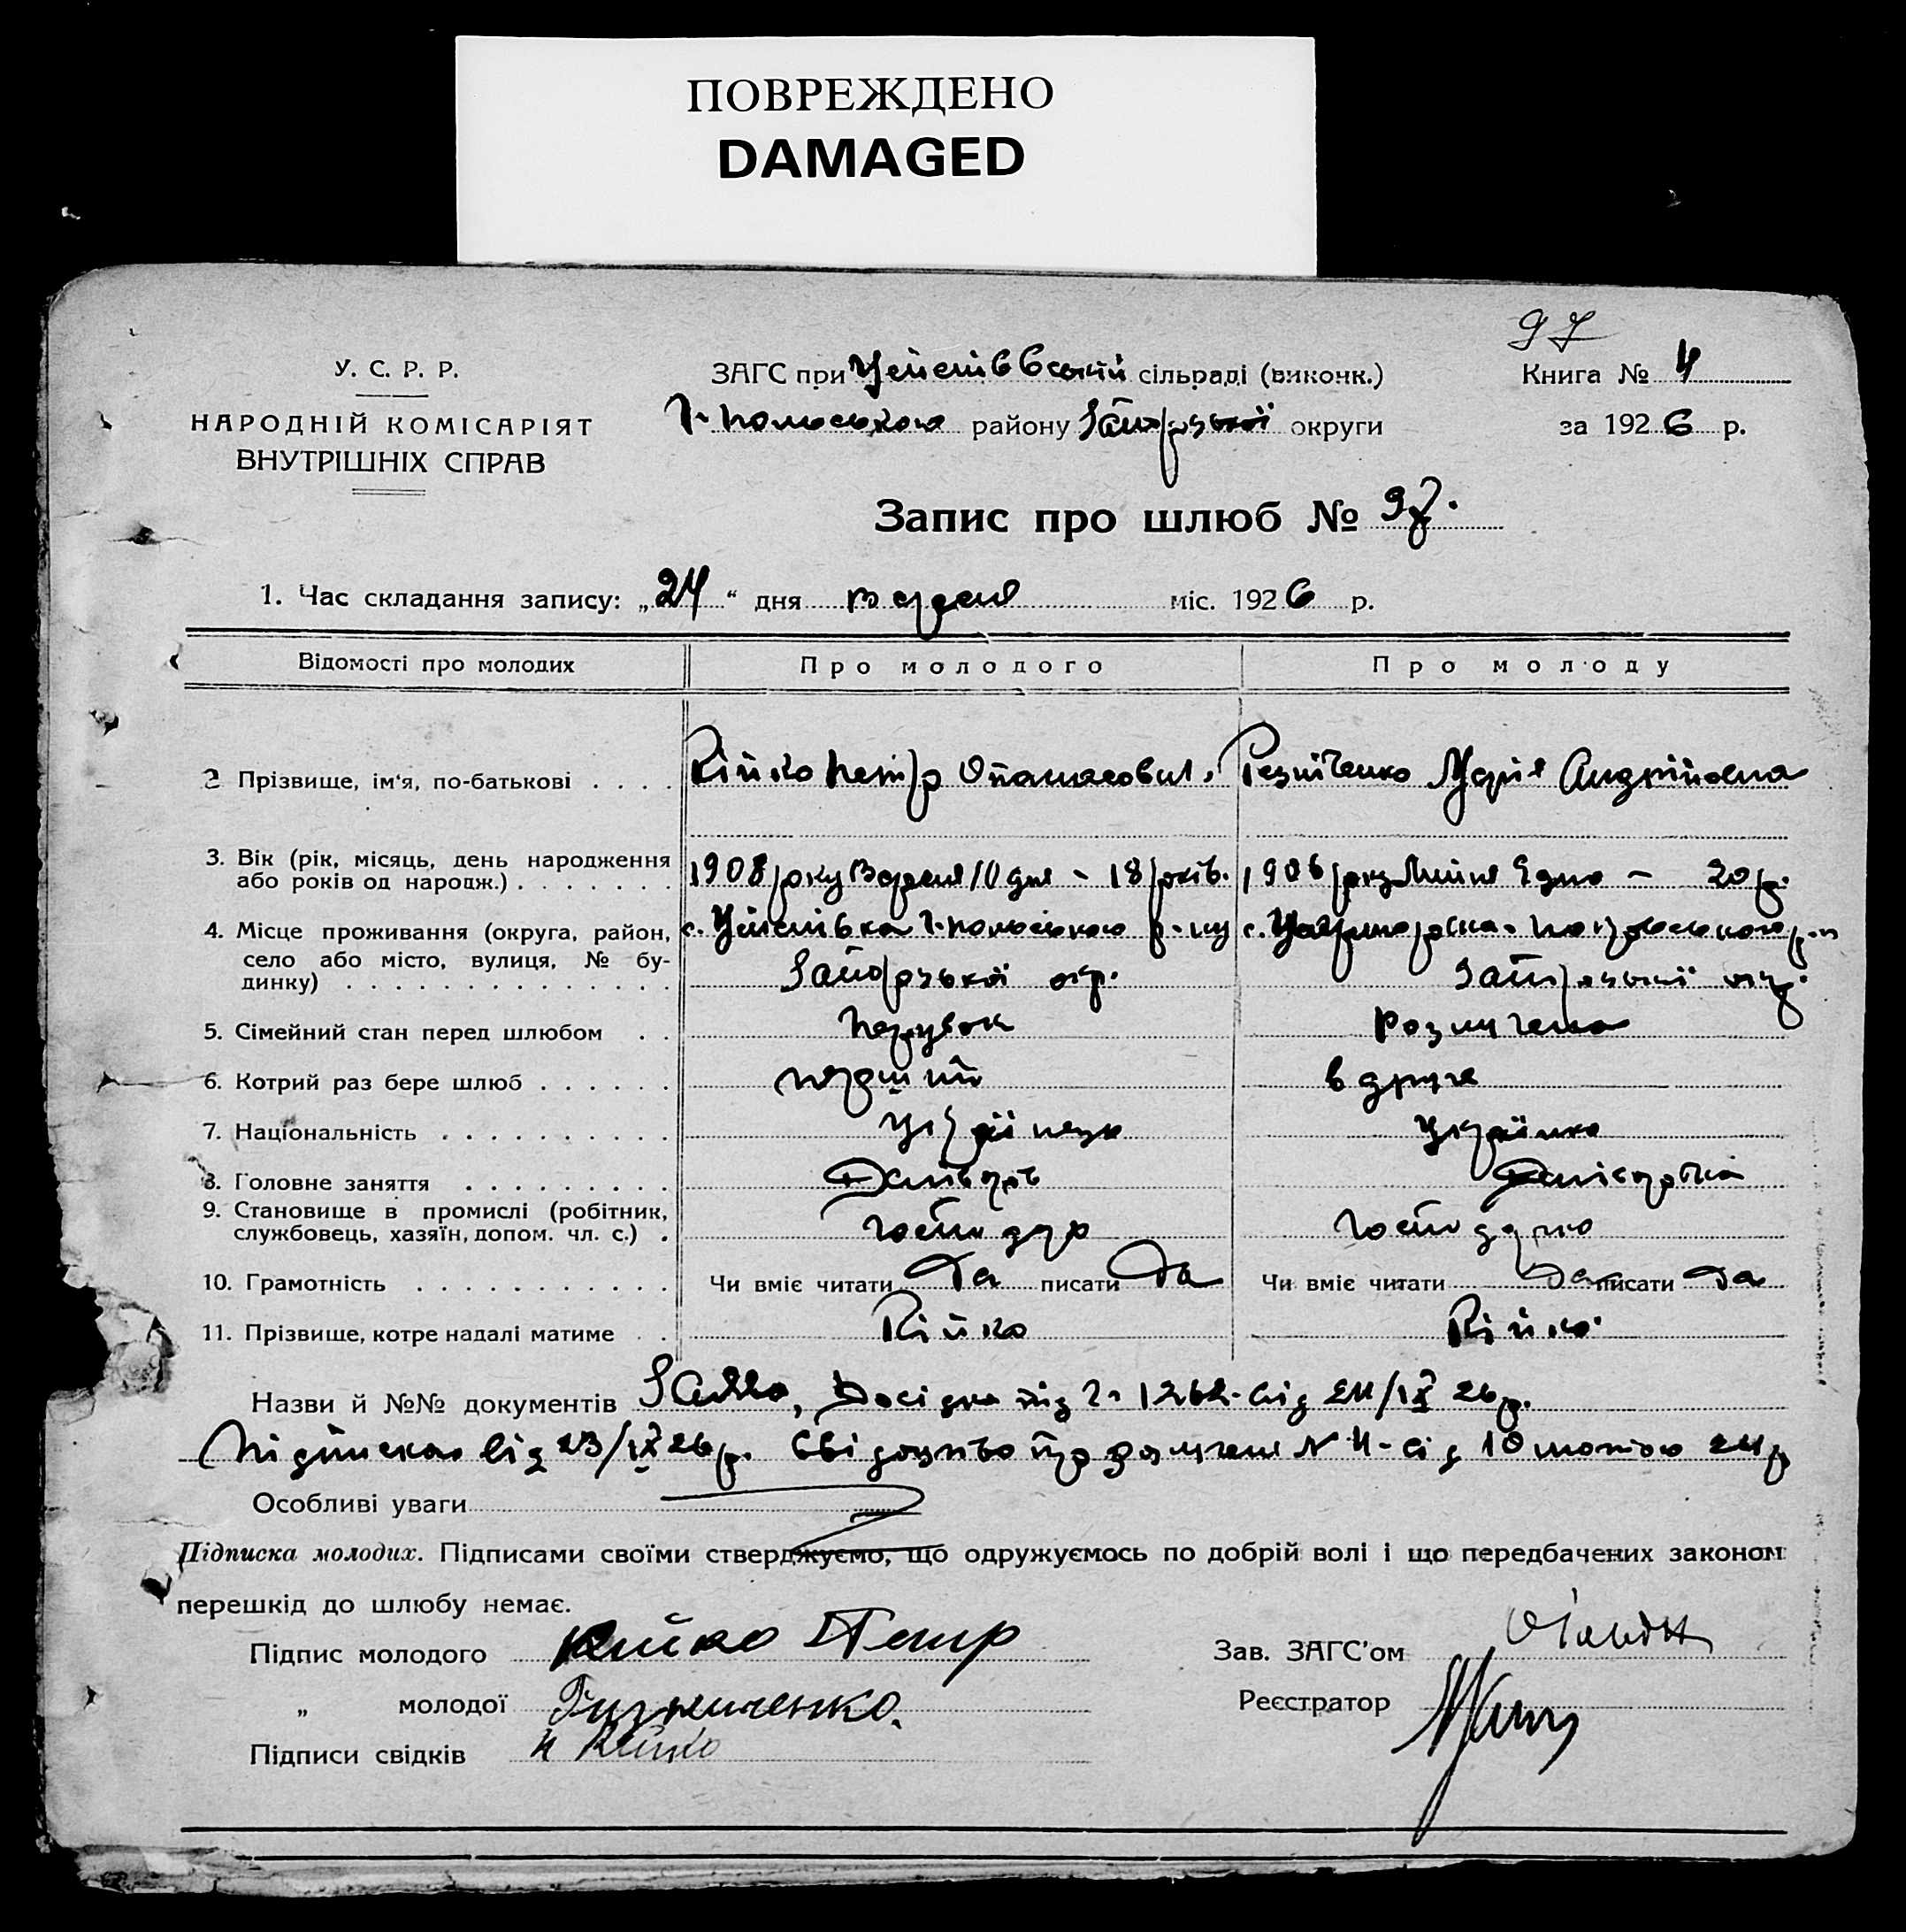 ПОВРЕЖДЕНО
DAMAGED
97
У. С. Р. Р.
НАРОДНІЙ КОМІСАРІЯТ
ВНУТРІШНІХ СПРАВ
ЗАГС при Успенівській сільраді (виконк.)
Г-Польського району Запорізької округи
Книга № 4
за 1926 р.
Запис про шлюб № 97.
1. Час складання запису: „24“ дня вересня міс. 1926 р.
Відомості про молодих Про молодого Про молоду
2 Прізвище, ім‘я, по-батькові . . . . Кійко Петр Опанасович. Резніченко Марія Андрійовна
3. Вік (рік, місяць, день народження
або років од народж.) . . . . . . . 1908 року Вересня 10 дня - 18 років. 1906 року Липня 9 дня - 20 р.
4. Місце проживання (округа, район, с. Успенівка Г-Польського р-ну с. Покровського р-н
село або місто, вулиця, № бу-
динку) . . . . . . . . . . . . . . Запорізької окр. Запорізької окр.
5. Сімейний стан перед шлюбом . . Парубок Розлучена
6. Котрий раз бере шлюб . . . . . . перший вдруге
7. Національність . . . . . . . . . . Українець Українка
8. Головне заняття . . . . . . . . . Хлібороб Хліборобка
9. Становище в промислі (робітник,
службовець, хазяїн, допом. чл. с.) . господар господарка
10. Грамотність . . . . . . . . . . . Чи вміє читати Да писати Да Чи вміє читати Да писати Да
11. Прізвище, котре надалі матиме . . Кійко Кійко
Назви й №№ документів Заява, Довідка під № 1262 від 24/IX 26 р.
Підписка від 23/IX 26 р. Свідоцтво про розлучення № 4 від 10 лютого 24 р
Особливі уваги
Підписка молодих. Підписами своїми стверджуємо, що одружуємось по добрій волі і що передбачених законом
перешкід до шлюбу немає.
Підпис молодого Кийко Петр
Зав. ЗАГС‘ом
„ молодої Ризниченко.
Реєстратор
Підписи свідків Н Кийко